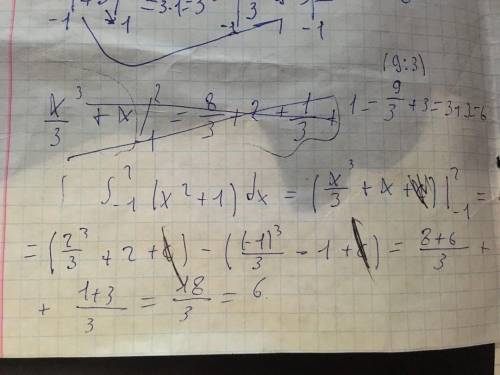 -1 -1 = 3·1 = 3 3 -1
(9:3)
x³/3 + x |²₋₁ = 8/3 + 2 + 1/3 + 1 = 9/3 + 3 = 3+3=6
∫₋₁² (x² + 1) dx = (x³/3 + x + ) |²₋₁ =
= (2³/3 + 2 + ) - ((-1)³/3 - 1 + ) = 8+6/3 +
+ 1+3/3 = 18/3 = 6